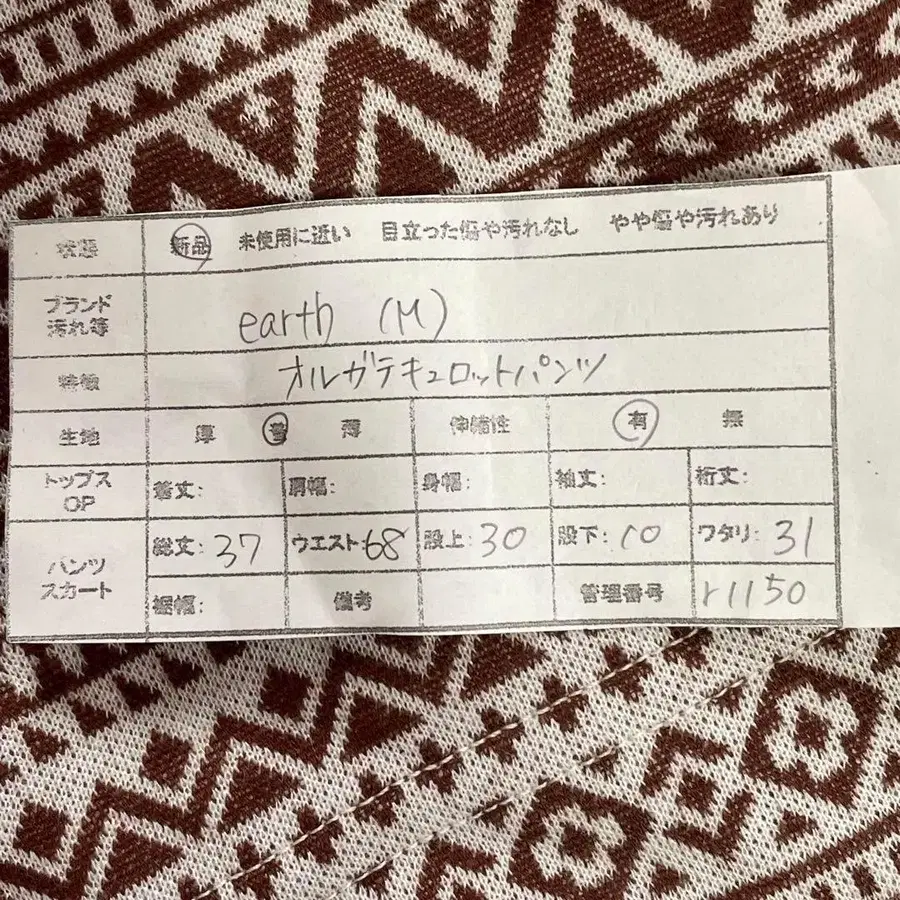 状態 新品 未使用に近い 目立った傷や汚れなし やや傷や汚れあり
ブランド
汚れ等
earth (M)
特徴 オルガテキュロットパンツ
生地 厚 普 薄 伸縮性 有 無
トップス
OP
着丈: 肩幅: 身幅: 袖丈: 裄丈:
パンツ
スカート
総丈: 37 ウエスト: 68 股上: 30 股下: 10 ワタリ: 31
裾幅: 備考 管理番号 r1150